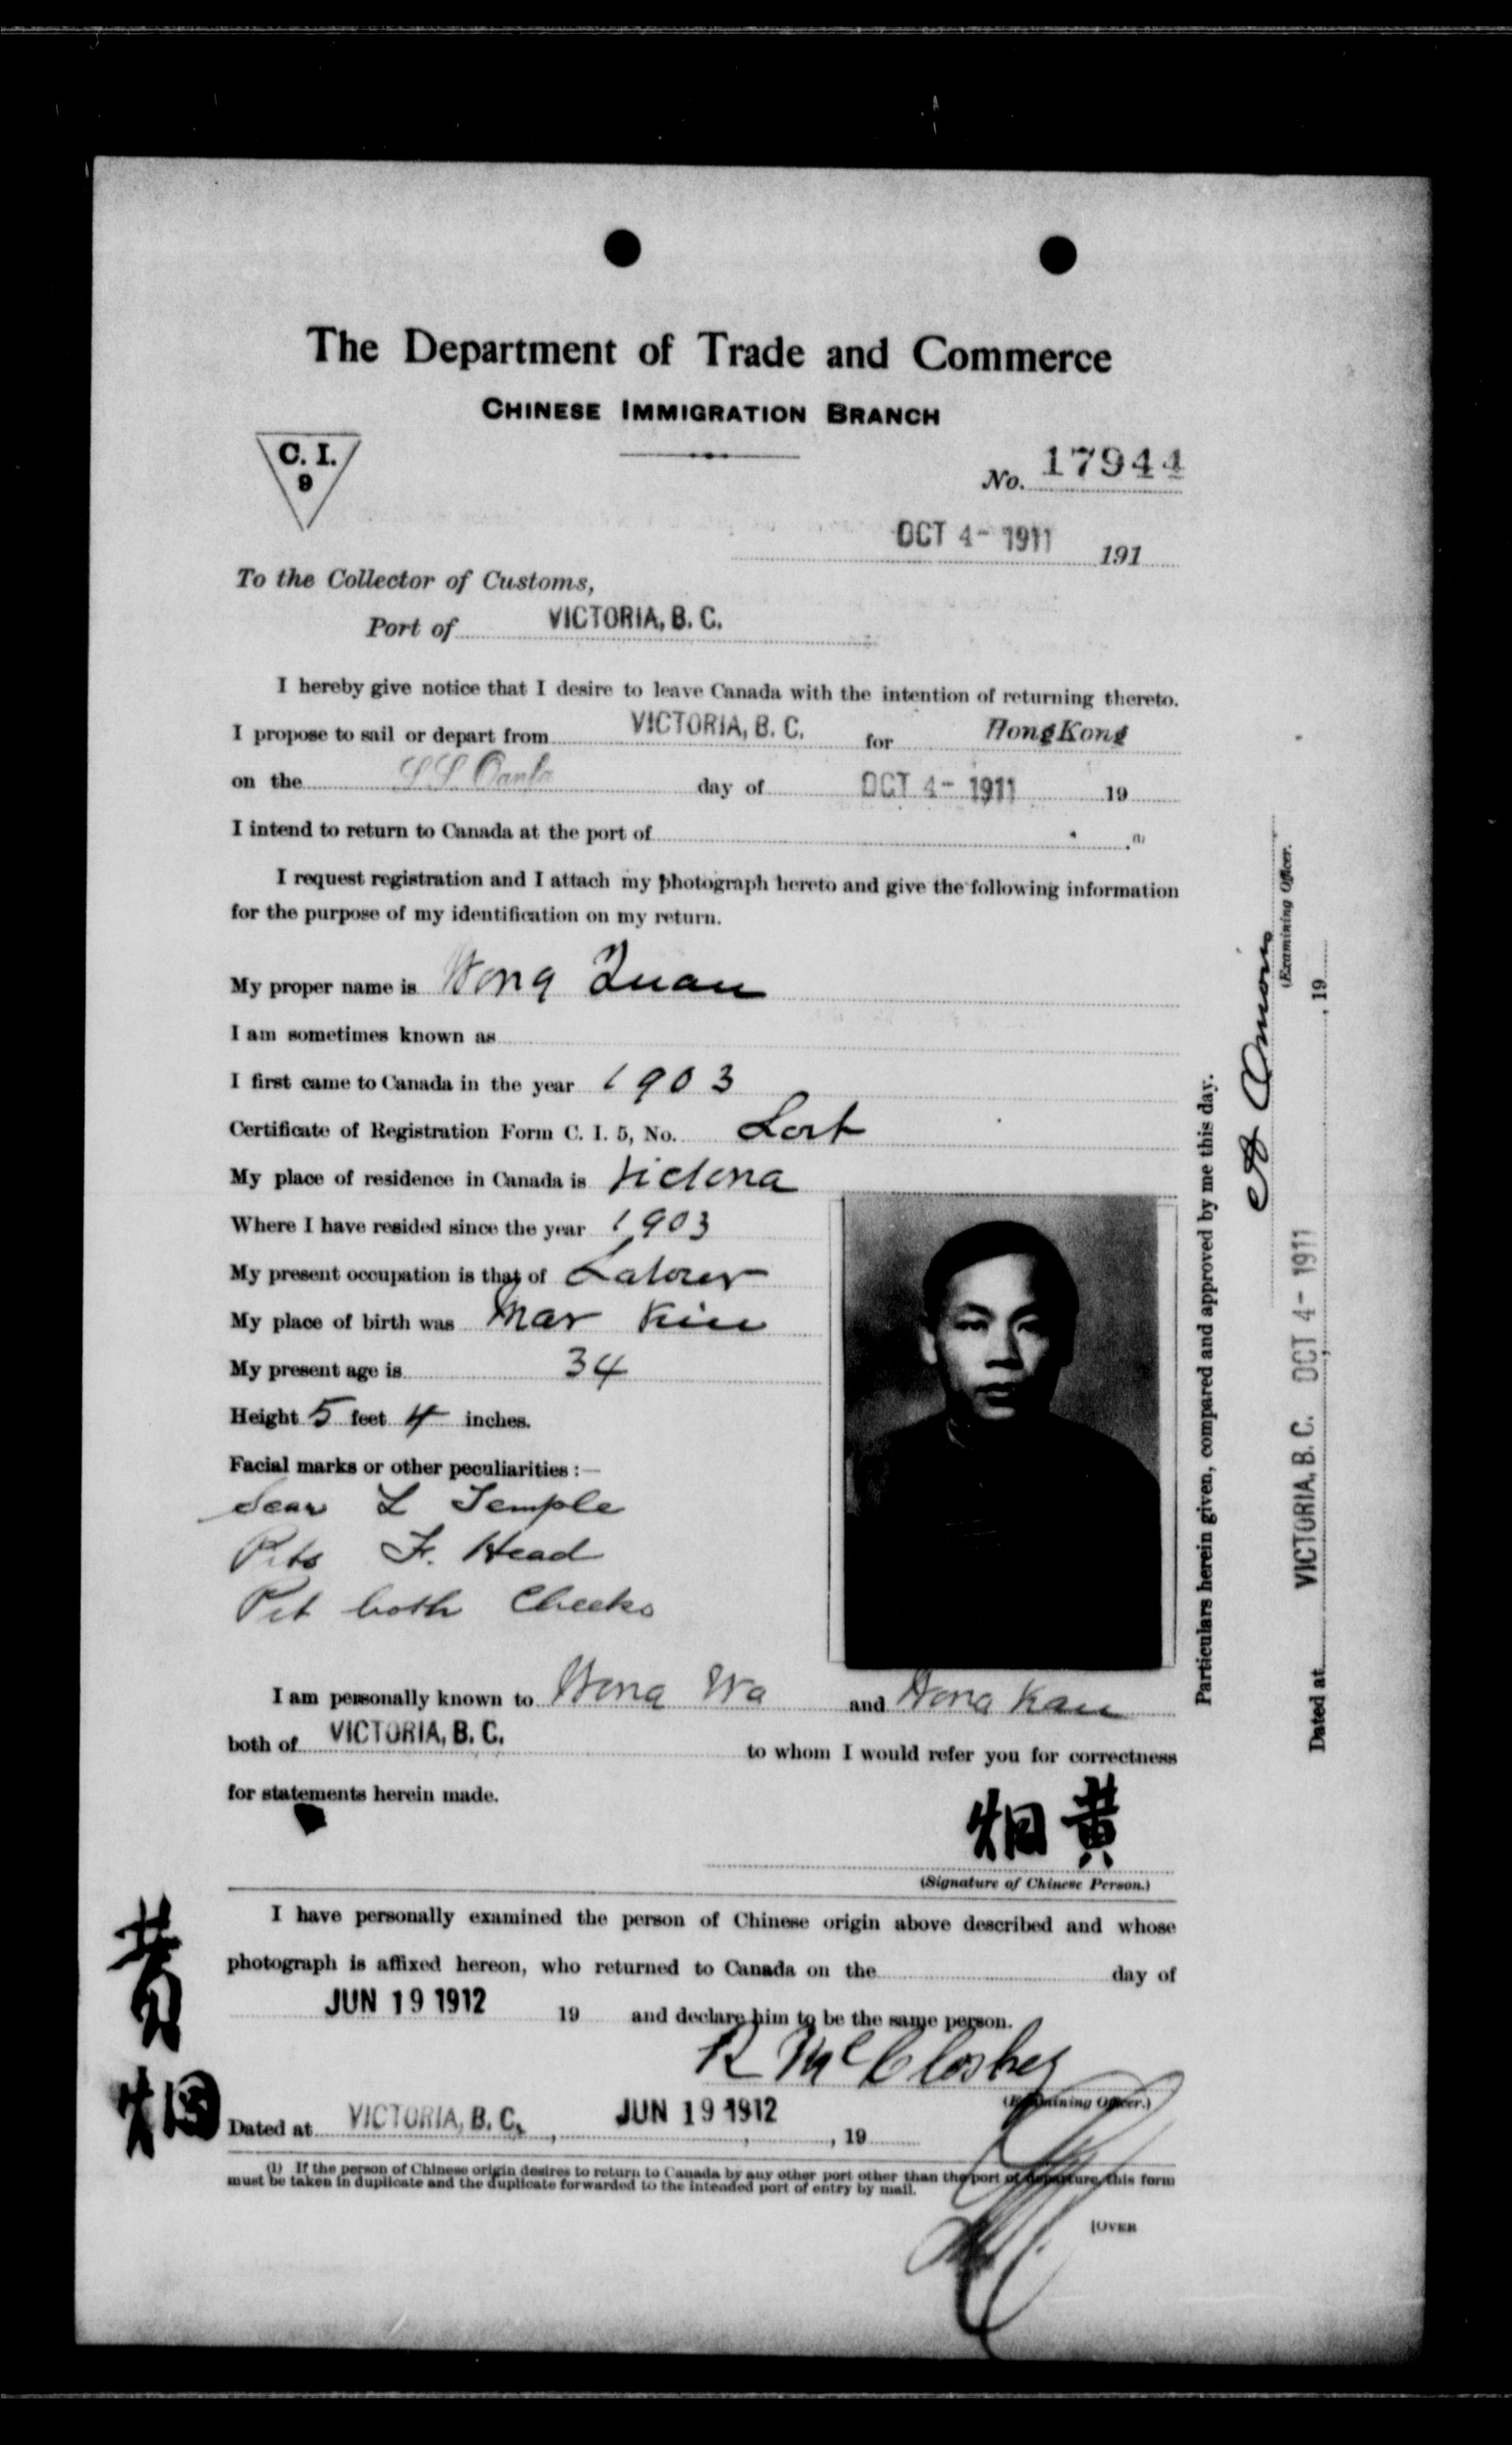 The Department of Trade and Commerce
CHINESE IMMIGRATION BRANCH
C. I.
9
No. 17944
OCT 4- 1911 191
To the Collector of Customs,
Port of VICTORIA, B. C.
I hereby give notice that I desire to leave Canada with the intention of returning thereto.
I propose to sail or depart from VICTORIA, B. C. for Hong Kong
on the SS day of OCT 4- 1911 19
I intend to return to Canada at the port of .(1)
I request registration and I attach my photograph hereto and give the following information
for the purpose of my identification on my return.
My proper name is Wong Quan
I am sometimes known as
I first came to Canada in the year 1903
Certificate of Registration Form C. I. 5, No. Lost
My place of residence in Canada is Victoria
Where I have resided since the year 1903
My present occupation is that of Laborer
My place of birth was Mar
My present age is 34
Height 5 feet 4 inches.
Facial marks or other peculiarities :—
Scar L Temple
Pits F. Head
Pit both Cheeks
I am personally known to Wong Wa and Wong
both of VICTORIA, B. C. to whom I would refer you for correctness
for statements herein made.
黄烟
(Signature of Chinese Person.)
I have personally examined the person of Chinese origin above described and whose
photograph is affixed hereon, who returned to Canada on the day of
JUN 19 1912 19 and declare him to be the same person.
R McCloskey
(Examining Officer.)
Dated at VICTORIA, B. C., JUN 19 1912, 19
(1) If the person of Chinese origin desires to return to Canada by any other port other than the port of departure, this form
must be taken in duplicate and the duplicate forwarded to the intended port of entry by mail.
[OVER
黄烟
Particulars herein given, compared and approved by me this day.
(Examining Officer.)
Dated at VICTORIA, B. C. OCT 4- 1911, 19